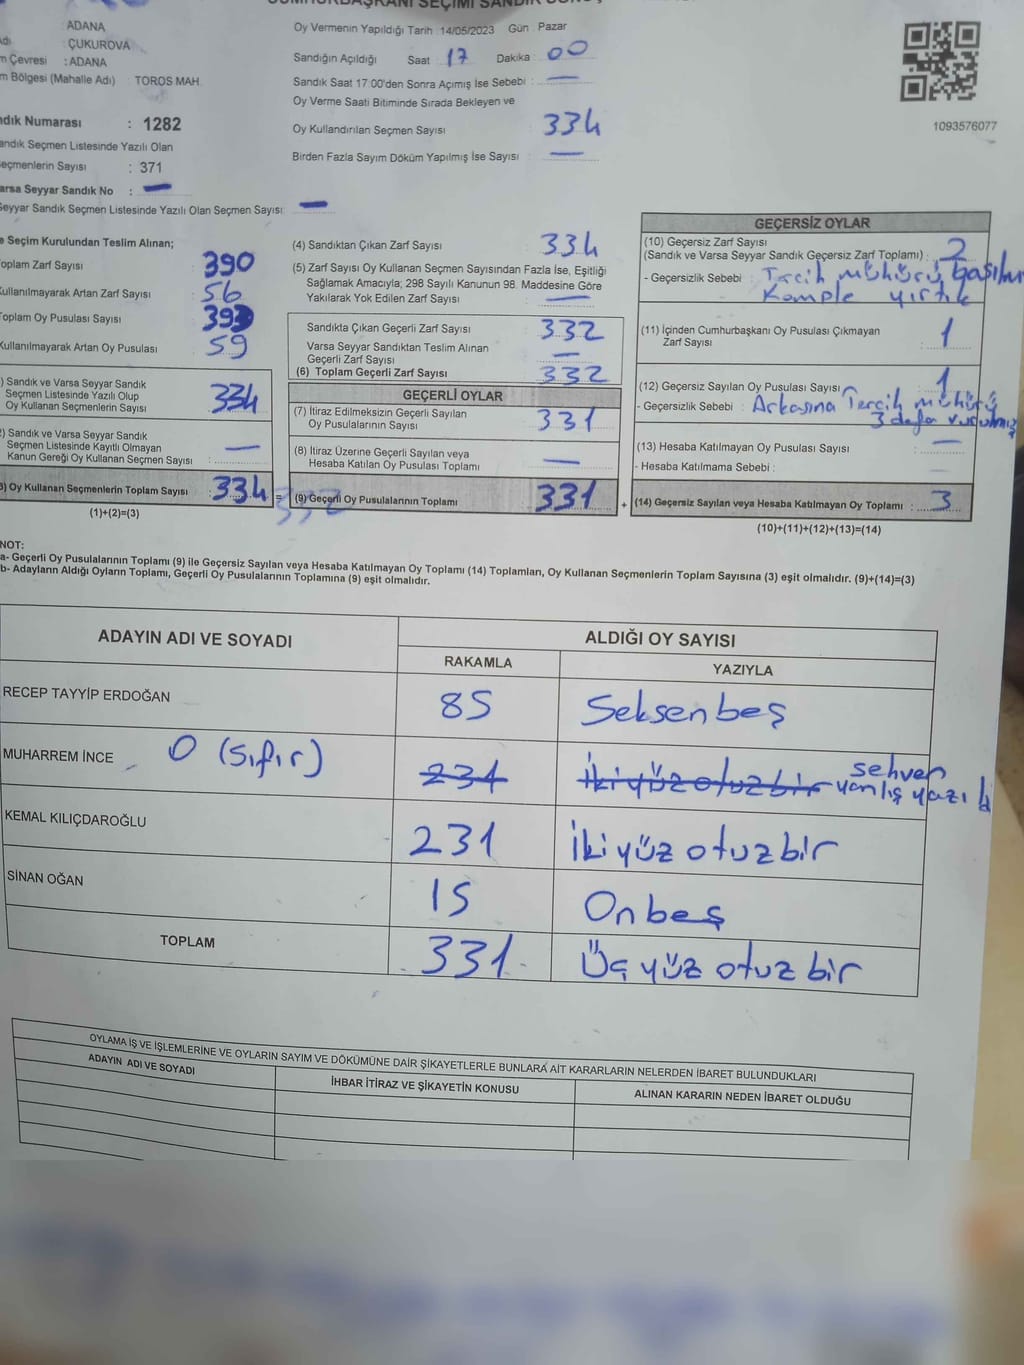 ADANA
ÇUKUROVA
: ADANA
(Mahalle Adı) TOROS MAH.
Oy Vermenin Yapıldığı Tarih :14/05/2023 Gün : Pazar
Sandığın Açıldığı Saat 17 Dakika : 00
Sandık Saat 17:00'den Sonra Açımış İse Sebebi : —
Oy Verme Saati Bitiminde Sırada Bekleyen ve
Oy Kullandırılan Seçmen Sayısı 334
Birden Fazla Sayım Döküm Yapılmış İse Sayısı : —
1093576077
Numarası : 1282
Seçmen Listesinde Yazılı Olan
Sayısı : 371
Seyyar Sandık No : —
Seyyar Sandık Seçmen Listesinde Yazılı Olan Seçmen Sayısı: —
Seçim Kurulundan Teslim Alınan;
Zarf Sayısı 390
Artan Zarf Sayısı 56
Oy Pusulası Sayısı
Artan Oy Pusulası 59
) Sandık ve Varsa Seyyar Sandık
Seçmen Listesinde Yazılı Olup
Oy Kullanan Seçmenlerin Sayısı 334
) Sandık ve Varsa Seyyar Sandık
Seçmen Listesinde Kayıtlı Olmayan
Kanun Gereği Oy Kullanan Seçmen Sayısı : —
) Oy Kullanan Seçmenlerin Toplam Sayısı : 334
(1)+(2)=(3)
(4) Sandıktan Çıkan Zarf Sayısı 334
(5) Zarf Sayısı Oy Kullanan Seçmen Sayısından Fazla İse, Eşitliği
Sağlamak Amacıyla; 298 Sayılı Kanunun 98. Maddesine Göre
Yakılarak Yok Edilen Zarf Sayısı —
Sandıkta Çıkan Geçerli Zarf Sayısı 332
Varsa Seyyar Sandıktan Teslim Alınan
Geçerli Zarf Sayısı —
(6) Toplam Geçerli Zarf Sayısı 332
GEÇERLİ OYLAR
(7) İtiraz Edilmeksizin Geçerli Sayılan
Oy Pusulalarının Sayısı 331
(8) İtiraz Üzerine Geçerli Sayılan veya
Hesaba Katılan Oy Pusulası Toplamı —
= 332 (9) Geçerli Oy Pusulalarının Toplamı 331
GEÇERSİZ OYLAR
(10) Geçersiz Zarf Sayısı
(Sandık ve Varsa Seyyar Sandık Geçersiz Zarf Toplamı) : 2
- Geçersizlik Sebebi : Tercih mühürü
Komple yırtık
(11) İçinden Cumhurbaşkanı Oy Pusulası Çıkmayan
Zarf Sayısı : 1
(12) Geçersiz Sayılan Oy Pusulası Sayısı : 1
- Geçersizlik Sebebi : Arkasına Tercih mühürü
3 defa vurulmuş
(13) Hesaba Katılmayan Oy Pusulası Sayısı : —
- Hesaba Katılmama Sebebi :
+ (14) Geçersiz Sayılan veya Hesaba Katılmayan Oy Toplamı : 3
(10)+(11)+(12)+(13)=(14)
NOT:
a- Geçerli Oy Pusulalarının Toplamı (9) ile Geçersiz Sayılan veya Hesaba Katılmayan Oy Toplamı (14) Toplamları, Oy Kullanan Seçmenlerin Toplam Sayısına (3) eşit olmalıdır. (9)+(14)=(3)
b- Adayların Aldığı Oyların Toplamı, Geçerli Oy Pusulalarının Toplamına (9) eşit olmalıdır.
ADAYIN ADI VE SOYADI
ALDIĞI OY SAYISI
RAKAMLA YAZIYLA
RECEP TAYYİP ERDOĞAN 85 Seksenbeş
MUHARREM İNCE 0 (Sıfır) 231 İkiyüzotuzbir sehven
yanlış yazıldı
KEMAL KILIÇDAROĞLU 231 İkiyüzotuzbir
SİNAN OĞAN 15 Onbeş
TOPLAM 331 Üçyüzotuzbir
OYLAMA İŞ VE İŞLEMLERİNE VE OYLARIN SAYIM VE DÖKÜMÜNE DAİR ŞİKAYETLERLE BUNLARA AİT KARARLARIN NELERDEN İBARET BULUNDUKLARI
ADAYIN ADI VE SOYADI İHBAR İTİRAZ VE ŞİKAYETİN KONUSU ALINAN KARARIN NEDEN İBARET OLDUĞU